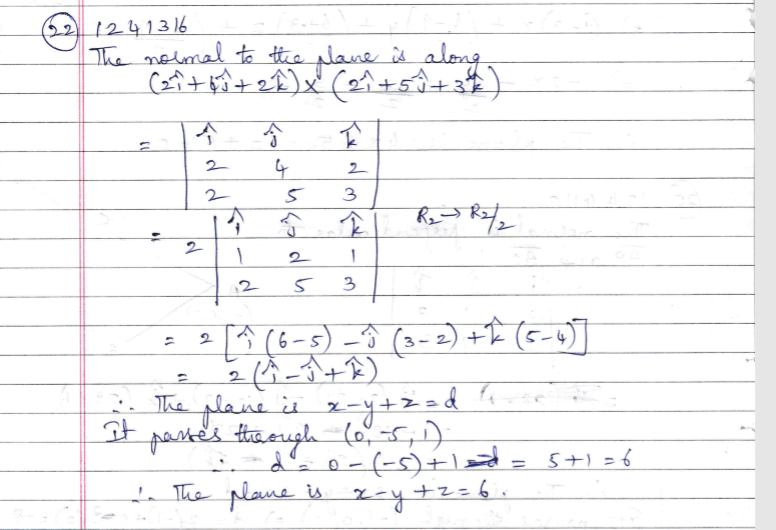 (22) 1241316
The normal to the plane is along
(2î + 4ĵ + 2k̂) × (2î + 5ĵ + 3k̂)
= | î ĵ k̂ |
2 4 2
2 5 3
= 2 | î ĵ k̂ | R₂ → R₂/2
1 2 1
2 5 3
= 2 [î (6-5) - ĵ (3-2) + k̂ (5-4)]
= 2 (î - ĵ + k̂)
∴ The plane is x-y+z=d
It passes through (0, -5, 1)
∴ d = 0-(-5)+1 = 5+1 = 6
∴ The plane is x-y+z=6.